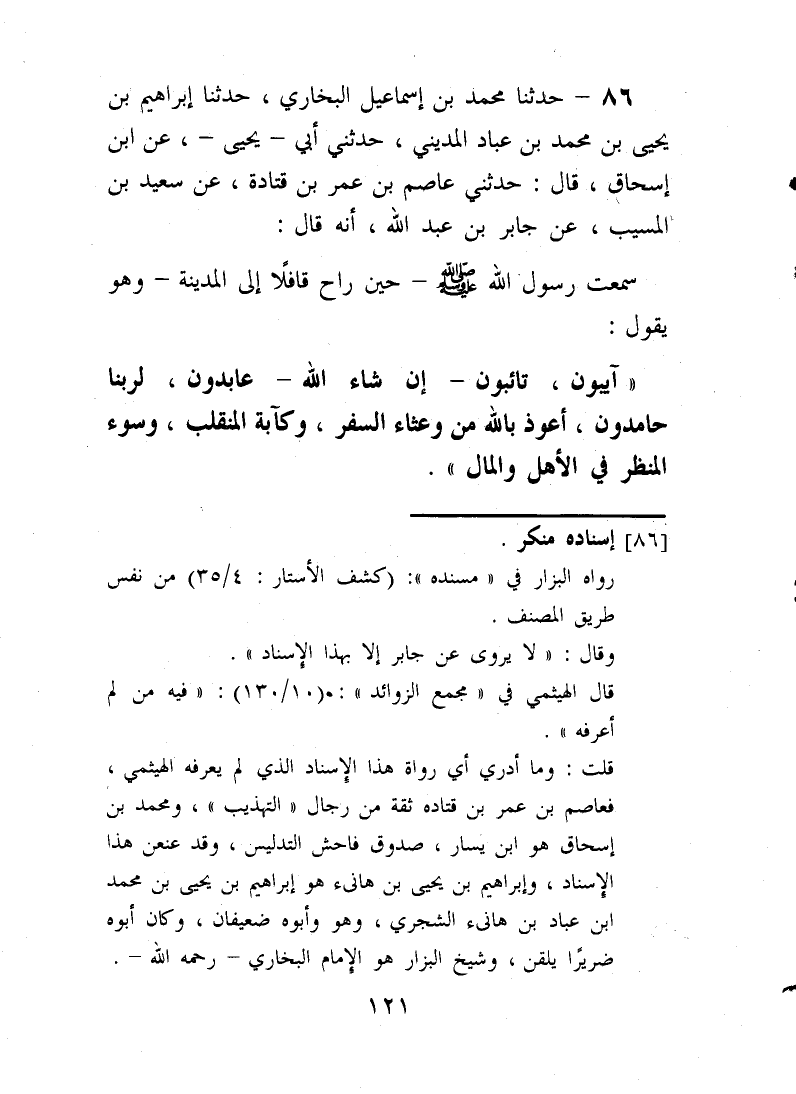 ٨٦ – حدثنا محمد بن إسماعيل البخاري ، حدثنا إبراهيم بن
يحيى بن محمد بن عباد المديني ، حدثني أبي – يحيى – ، عن ابن
إسحاق ، قال : حدثني عاصم بن عمر بن قتادة ، عن سعيد بن
المسيب ، عن جابر بن عبد الله ، أنه قال :
سمعت رسول الله ﷺ – حين راح قافلًا إلى المدينة – وهو
يقول :
« آيبون ، تائبون – إن شاء الله – عابدون ، لربنا
حامدون ، أعوذ بالله من وعثاء السفر ، وكآبة المنقلب ، وسوء
المنظر في الأهل والمال » .
[٨٦] إسناده منكر .
رواه البزار في « مسنده »: (كشف الأستار : ٣٥/٤) من نفس
طريق المصنف .
وقال : « لا يروى عن جابر إلا بهذا الإسناد » .
قال الهيثمي في « مجمع الزوائد » : (١٣٠/١٠) : « فيه من لم
أعرفه » .
قلت : وما أدري أي رواة هذا الإسناد الذي لم يعرفه الهيثمي ،
فعاصم بن عمر بن قتاده ثقة من رجال « التهذيب » ، ومحمد بن
إسحاق هو ابن يسار ، صدوق فاحش التدليس ، وقد عنعن هذا
الإسناد ، وإبراهيم بن يحيى بن هانىء هو إبراهيم بن يحيى بن محمد
ابن عباد بن هانىء الشجري ، وهو وأبوه ضعيفان ، وكان أبوه
ضريرًا يلقن ، وشيخ البزار هو الإمام البخاري – رحمه الله – .
١٢١